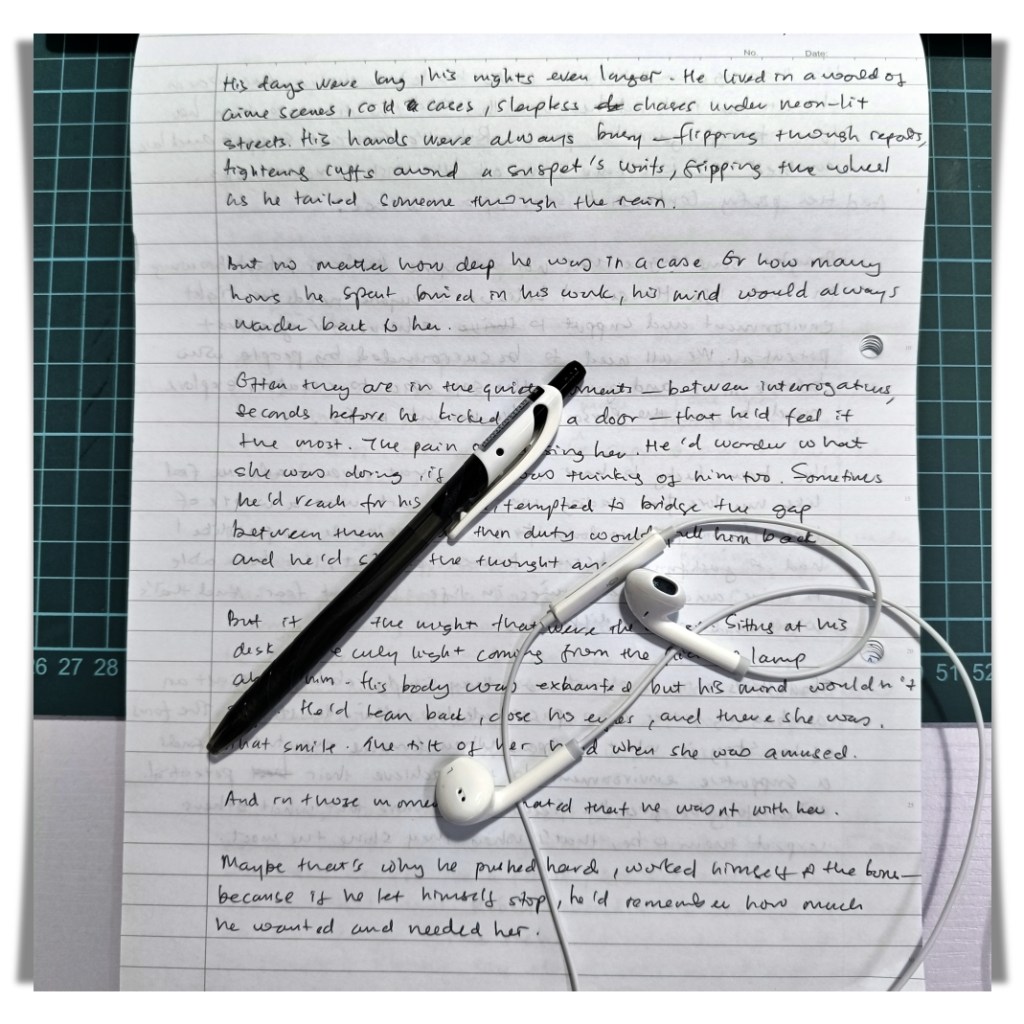 No. Date:
His days were long, his nights even longer. He lived in a world of
crime scenes, cold cases, sleepless chases under neon-lit
streets. His hands were always busy — flipping through reports,
tightening cuffs around a suspet's wrists, gripping the wheel
as he tailed someone through the rain.
But no matter how deep he was in a case or how many
hours he spent buried in his work, his mind would always
wander back to her.
Often they are in the quiet ments — between interrogations,
seconds before he kicked a door — that he'd feel it
the most. The pain sing her. He'd wonder what
she was doing, if was thinking of him too. Sometimes
he'd reach for his tempted to bridge the gap
between them then duty would pull him back
and he'd the thought
But it the night that were the Sitting at his
desk only light coming from the lamp
him. His body was exhausted but his mind wouldn't
He'd lean back, close his eyes, and there she was.
that smile. The tilt of her head when she was amused.
And in those mome ated that he wasnt with her.
Maybe that's why he pushed hard, worked himself to the bone —
because if he let himself stop, he'd remember how much
he wanted and needed her.
26 27 28
51 52